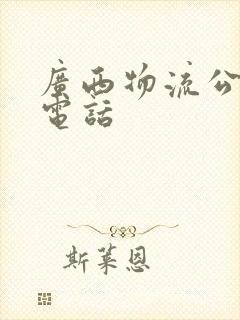 廣西物流公
電話
斯萊恩